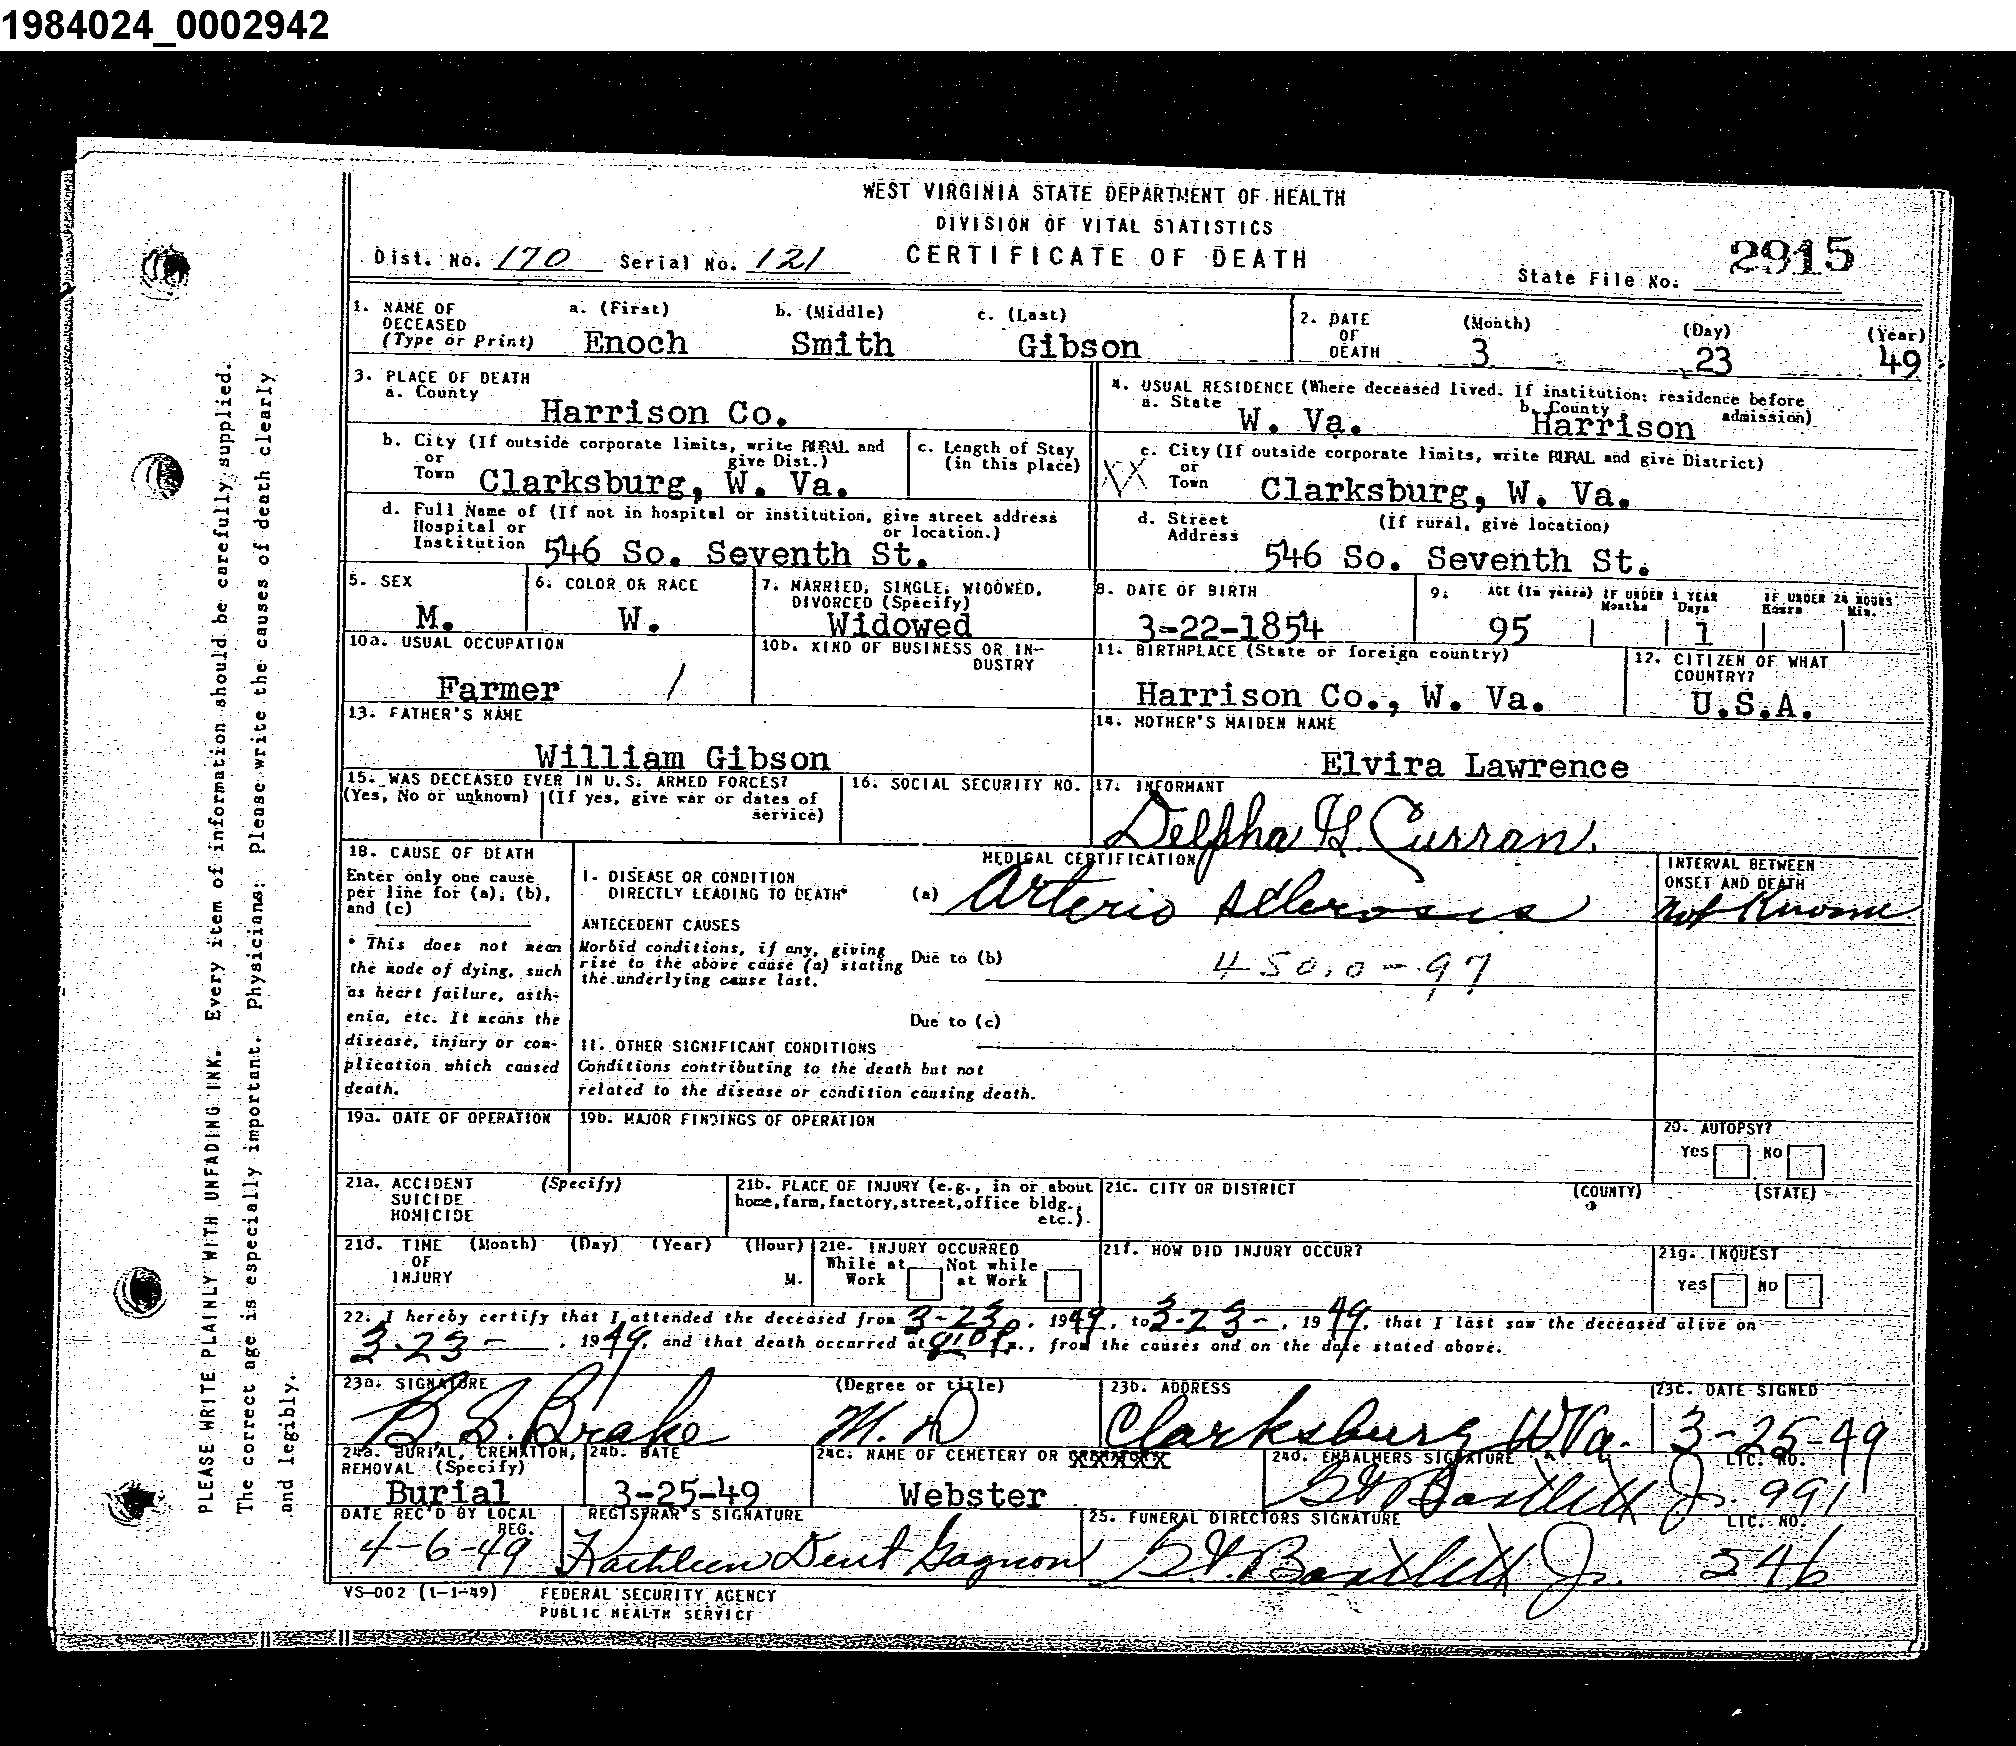 1984024_0002942
WEST VIRGINIA STATE DEPARTMENT OF HEALTH
DIVISION OF VITAL STATISTICS
Dist. No. 170 Serial No. 121 CERTIFICATE OF DEATH State File No. 2915
1. NAME OF DECEASED (Type or Print) a. (First) Enoch b. (Middle) Smith c. (Last) Gibson
2. DATE OF DEATH (Month) 3 (Day) 23 (Year) 49
3. PLACE OF DEATH
a. County Harrison Co.
4. USUAL RESIDENCE (Where deceased lived. If institution: residence before admission)
a. State W. Va. b. County Harrison
b. City (If outside corporate limits, write RURAL and give Dist.) or Town Clarksburg, W. Va.
c. Length of Stay (in this place)
XX c. City (If outside corporate limits, write RURAL and give District) or Town Clarksburg, W. Va.
d. Full Name of (If not in hospital or institution, give street address or location.) Hospital or Institution 546 So. Seventh St.
d. Street Address (If rural, give location) 546 So. Seventh St.
5. SEX M.
6. COLOR OR RACE W.
7. MARRIED, SINGLE, WIDOWED, DIVORCED (Specify) Widowed
8. DATE OF BIRTH 3-22-1854
9. AGE (In years) 95 IF UNDER 1 YEAR Months Days 1 IF UNDER 24 HOURS Hours Min.
10a. USUAL OCCUPATION Farmer /
10b. KIND OF BUSINESS OR INDUSTRY
11. BIRTHPLACE (State or foreign country) Harrison Co., W. Va.
12. CITIZEN OF WHAT COUNTRY? U.S.A.
13. FATHER'S NAME William Gibson
14. MOTHER'S MAIDEN NAME Elvira Lawrence
15. WAS DECEASED EVER IN U.S. ARMED FORCES?
(Yes, No or unknown) (If yes, give war or dates of service)
16. SOCIAL SECURITY NO.
17. INFORMANT Delpha G. Curran.
18. CAUSE OF DEATH
Enter only one cause per line for (a), (b), and (c)
MEDICAL CERTIFICATION
INTERVAL BETWEEN ONSET AND DEATH
I. DISEASE OR CONDITION DIRECTLY LEADING TO DEATH* (a) Arterio Sclerosis Not Known
* This does not mean the mode of dying, such as heart failure, asthenia, etc. It means the disease, injury or complication which caused death.
ANTECEDENT CAUSES
Morbid conditions, if any, giving rise to the above cause (a) stating the underlying cause last.
Due to (b) 450.0-97
Due to (c)
II. OTHER SIGNIFICANT CONDITIONS
Conditions contributing to the death but not related to the disease or condition causing death.
19a. DATE OF OPERATION
19b. MAJOR FINDINGS OF OPERATION
20. AUTOPSY? Yes No
21a. ACCIDENT SUICIDE HOMICIDE (Specify)
21b. PLACE OF INJURY (e.g., in or about home, farm, factory, street, office bldg., etc.)
21c. CITY OR DISTRICT (COUNTY) (STATE)
21d. TIME OF INJURY (Month) (Day) (Year) (Hour) M.
21e. INJURY OCCURRED While at Work Not while at Work
21f. HOW DID INJURY OCCUR?
21g. INQUEST Yes No
22. I hereby certify that I attended the deceased from 3-23, 1949, to 3-23-, 1949, that I last saw the deceased alive on
3-23-, 1949, and that death occurred at m., from the causes and on the date stated above.
23a. SIGNATURE B. S. Brake (Degree or title) M.D
23b. ADDRESS Clarksburg W.Va.
23c. DATE SIGNED 3-25-49
24a. BURIAL, CREMATION, REMOVAL (Specify) Burial
24b. DATE 3-25-49
24c. NAME OF CEMETERY OR Webster
24d. EMBALMERS SIGNATURE Bartlett Jr. LIC. NO. 991
DATE REC'D BY LOCAL REG. 4-6-49
REGISTRAR'S SIGNATURE Kathleen Dent Gagnon
25. FUNERAL DIRECTORS SIGNATURE Bartlett Jr. LIC. NO. 546
VS-002 (1-1-49) FEDERAL SECURITY AGENCY
PUBLIC HEALTH SERVICE
PLEASE WRITE PLAINLY WITH UNFADING INK. Every item of information should be carefully supplied.
The correct age is especially important. Physicians: please write the causes of death clearly
and legibly.